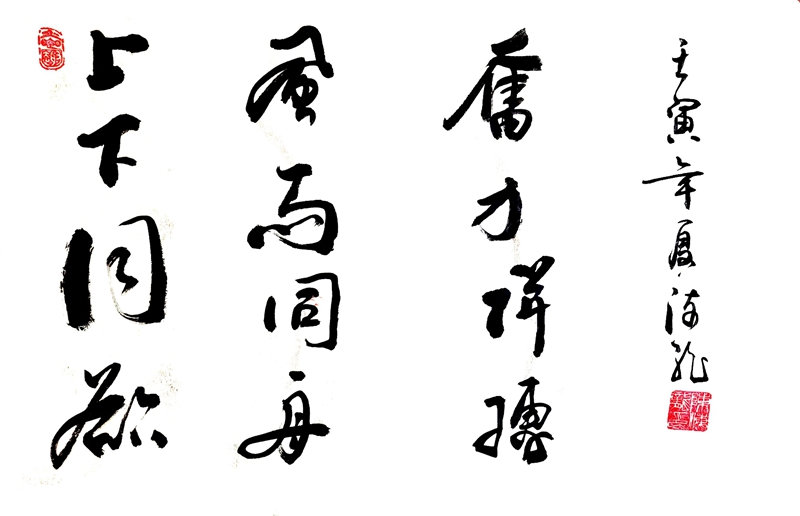 上下同欲
風雨同舟
奮力拼搏
壬寅年夏海龍